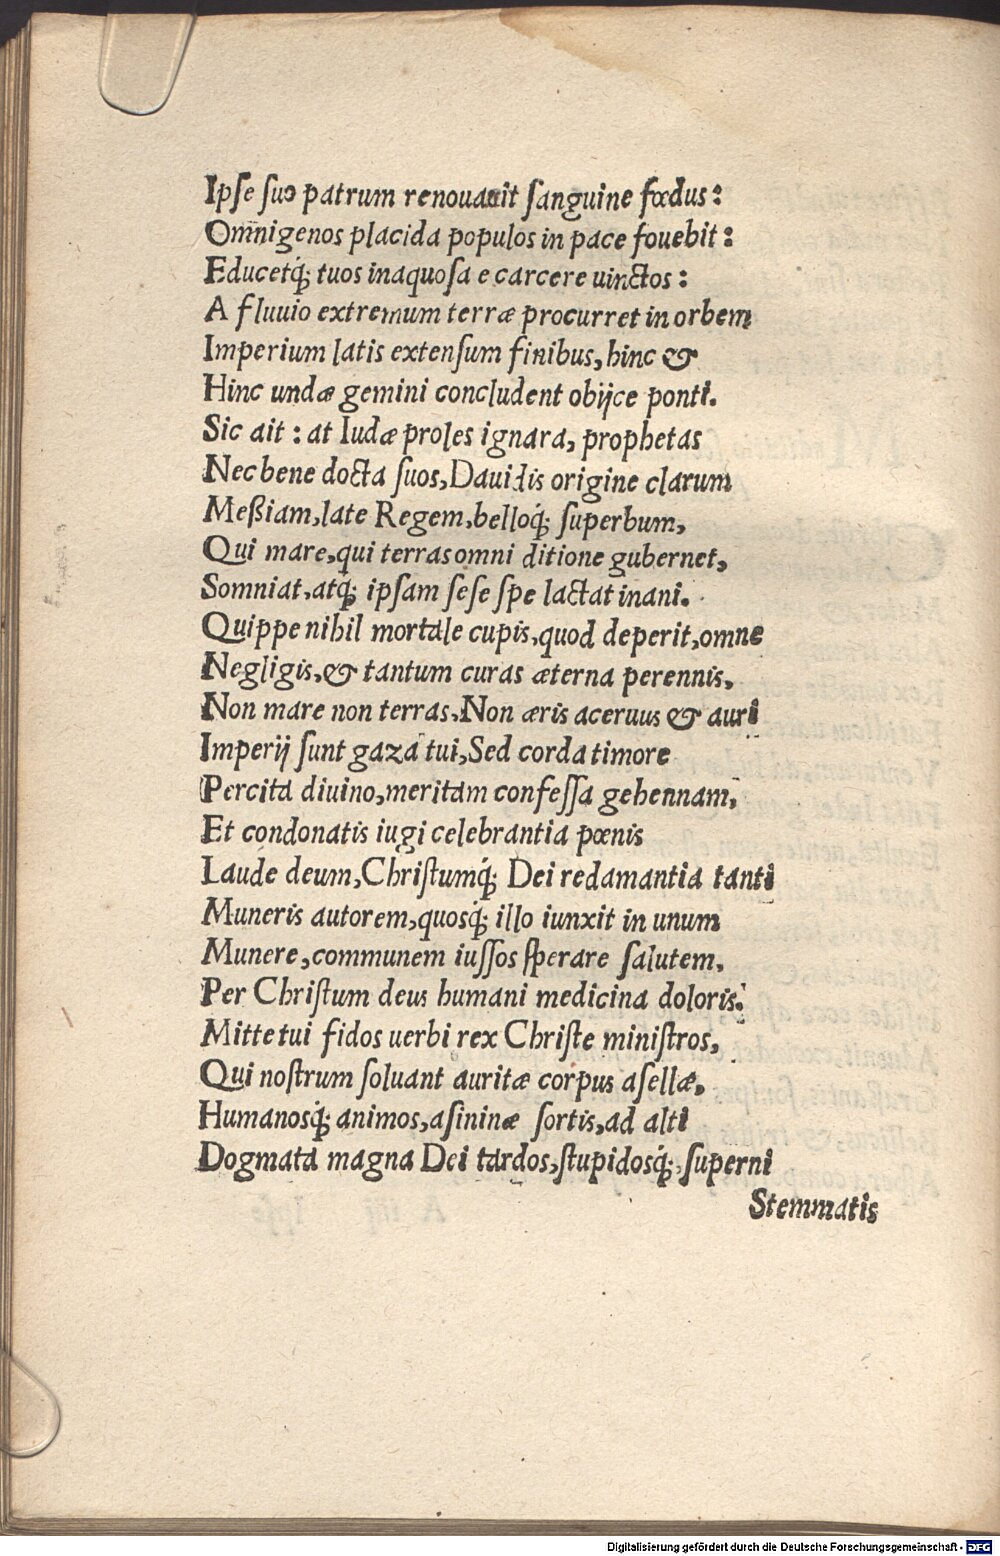 Ipſe ſuo patrum renouauit ſanguine fœdus:
Omnigenos placida populos in pace fouebit:
Educetq́; tuos inaquoſa e carcere uinctos:
A fluuio extremum terræ procurret in orbem
Imperium latis extenſum finibus, hinc &
Hinc undæ gemini concludent obijce ponti.
Sic ait: at Iudæ proles ignara, prophetas
Nec bene docta ſuos, Dauidis origine clarum
Meßiam, late Regem, belloq́; ſuperbum,
Qui mare, qui terras omni ditione gubernet,
Somniat, atq́; ipſam ſeſe ſpe lactat inani.
Quippe nihil mortale cupis, quod deperit, omne
Negligis, & tantum curas æterna perennis,
Non mare non terras, Non æris aceruus & auri
Imperij ſunt gaza tui, Sed corda timore
Percita diuino, meritam confeſſa gehennam,
Et condonatis iugi celebrantia pœnis
Laude deum, Chriſtumq́; Dei redamantia tanti
Muneris autorem, quosq́; illo iunxit in unum
Munere, communem iuſſos ſperare ſalutem,
Per Chriſtum deus humani medicina doloris.
Mitte tui fidos uerbi rex Chriſte miniſtros,
Qui noſtrum ſoluant auritæ corpus aſellæ,
Humanosq́; animos, aſininæ ſortis, ad alti
Dogmata magna Dei tardos, ſtupidosq́; ſuperni
Stemmatis
Digitalisierung gefördert durch die Deutsche Forschungsgemeinschaft - DFG